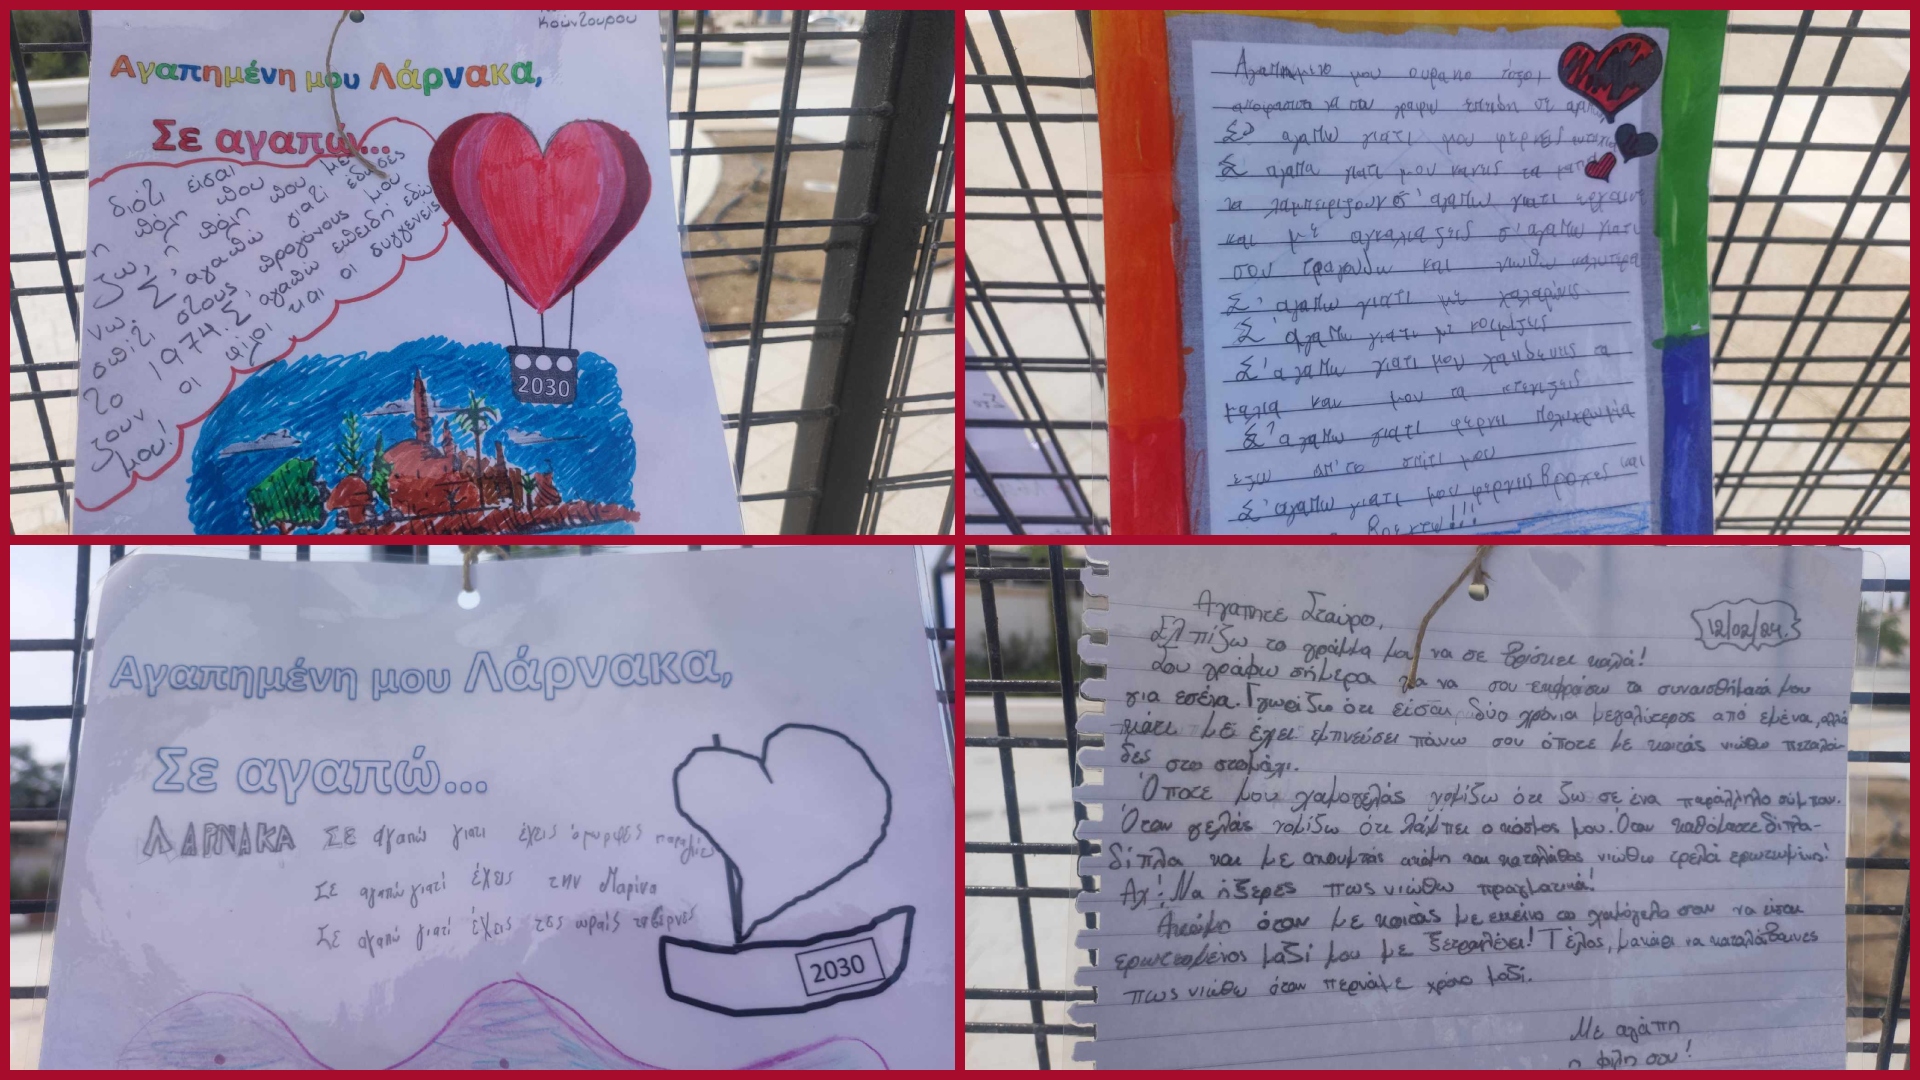 Κούντουρου
Αγαπημένη μου Λάρνακα,
Σε αγαπώ...
διότι είσαι
η πόλη που με
ζω, η πόλη που
νω. Σ' αγαπώ γιατί έδωσες
σπίτι στους προγόνους μου
το 1974. Σ' αγαπώ επειδή εδώ
ζουν οι φίλοι και οι συγγενείς
μου!
2030
Αγαπημενο μου ουρανιο τοξο,
αποφασισα να σου γραψω επειδη σε
Σ' αγαπω γιατι μου φερνεις
Σ' αγαπω γιατι μου κανεις τα ματια
να λαμπιριζουν σ' αγαπω γιατι ερχεσαι
και με αγκαλιαζεις σ' αγαπω γιατι
σου τραγουδω και νιωθω καλυτερα
Σ' αγαπω γιατι με χαλαρωνις
Σ' αγαπω γιατι με κοιμιζεις
Σ' αγαπω γιατι μου χαιδευις τα
μαλια και μου τα στεγνωζεις
Σ' αγαπω γιατι φερνη πολυχρωμια
εξω απ'το σπιτι μου
Σ' αγαπω γιατι μου φερνις βροχες και
βρεχεω!!!
Αγαπημένη μου Λάρνακα,
Σε αγαπώ...
ΛΑΡΝΑΚΑ Σε αγαπώ γιατι έχεις όμορφες παραλίες
Σε αγαπώ γιατί έχεις την Μαρίνα
Σε αγαπώ γιατί έχεις τες ωραίς ταβέρνες
2030
Αγαπητέ Σταύρο,
12/02/24.
Ελπίζω το γράμμα μου να σε βρίσκει καλά!
Σου γράφω σήμερα για να σου εκφράσω τα συναισθήματά μου
για εσένα. Γνωρίζω ότι είσαι δύο χρόνια μεγαλύτερος από εμένα, αλλά
κάτι με έχει εμπνεύσει πάνω σου όποτε με κοιτάς νιώθω πεταλού-
δες στο στομάχι.
Όποτε μου χαμογελάς νομίζω ότι ζω σε ένα παράλληλο σύμπαν.
Όταν γελάς νομίζω ότι λάμπει ο κόσμος μου. Όταν καθόμαστε δίπλα-
δίπλα και με ακουμπάς ακόμη και καταλάθος νιώθω τρελά ερωτευμένη!
Αχ! Να ήξερες πως νιώθω πραγματικά!
Ακόμη όταν με κοιτάς με εκείνο το χαμόγελο σαν να είσαι
ερωτευμένος μαζί μου με ξετρελένει! Τέλος, μακάρι να καταλάβαινες
πως νιώθω όταν περνάμε χρόνο μαζί.
Με αγάπη
η φίλη σου!